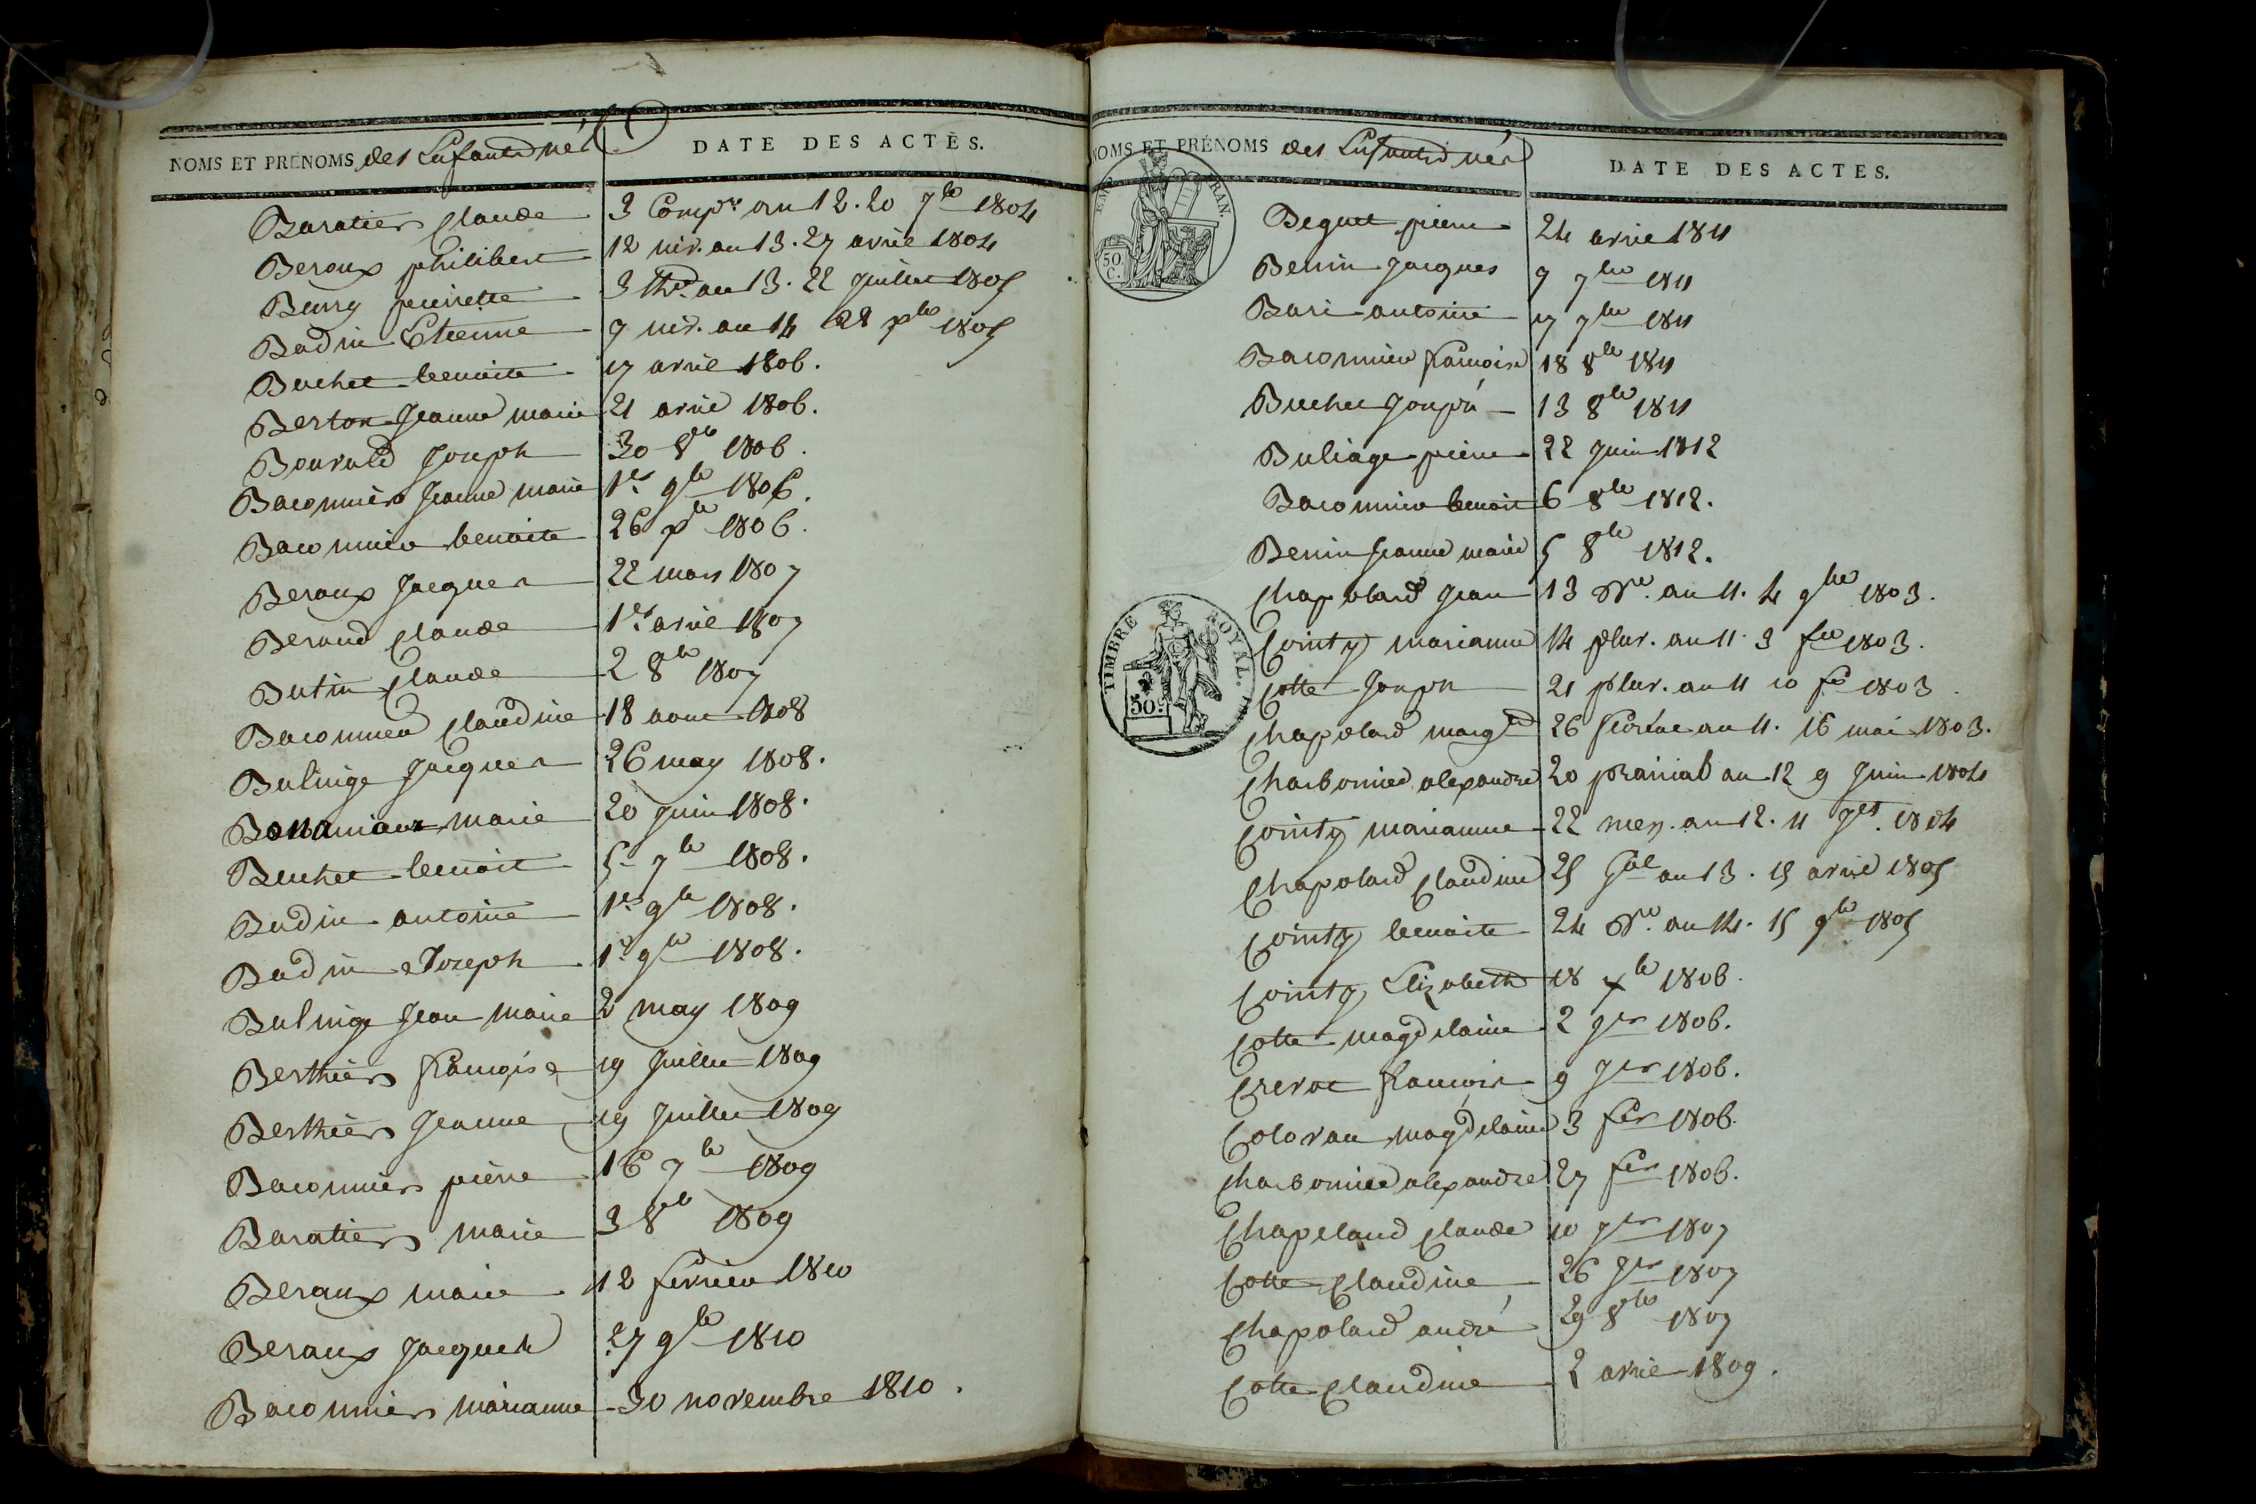 NOMS ET PRÉNOMS des Enfants nés
DATE DES ACTES.
Baratier Claude 3 Compre an 12. 20 7bre 1804
Beroux philibert 12 niv. an 13. 27 avril 1804
Burry pierrette 3 thr. an 13. 22 Juillet 1805
Badin Etienne 7 niv. an 14 28 xbre 1805
Buchet benoite 17 avril 1806.
Berton Jeanne marie 21 avril 1806.
Bourald Joseph 30 8bre 1806.
Baconnier Jeanne marie 1er 9bre 1806.
Baconnier benoite 26 xbre 1806.
Beraux Jacques 22 mars 1807
Beraud Claude 1er avril 1807
Butin Claude 2 8bre 1807
Baconnier Claudine 18 aout 1808
Bulinge Jacques 26 may 1808.
Bonamiaux marie 20 Juin 1808.
Buchet benoit 5 7bre 1808.
Badin antoine 1er 9bre 1808.
Badin Joseph 1er 9bre 1808.
Bulinge Jean marie 2 may 1809
Berthier françoise 19 Juillet 1809
Berthier Jeanne 19 Juillet 1809
Baconnier pierre 16 7bre 1809
Baratier marie 3 8bre 1809
Beraux marie 12 fevrier 1810
Beraux Jacques 27 9bre 1810
Baconnier marianne 30 novembre 1810.
NOMS ET PRÉNOMS des Enfants nés
DATE DES ACTES.
50 C.
Beguet pierre 24 avril 1811
Benin Jacques 9 7bre 1811
Bari antoine 17 7bre 1811
Baconnier françoise 18 8bre 1811
Buchet Joseph 13 8bre 1811
Buliage pierre 22 Juin 1812
Baconnier benoit 6 8bre 1812.
Benin Jeanne marie 5 8bre 1812.
Chapolard Jean 13 Bre. an 11. 4 9bre 1803.
Cointy marianne 14 pluv. an 11. 3 fer 1803.
Cotte Joseph 21 pluv. an 11 10 fer 1803.
TIMBRE ROYAL.
50c
Chapolard margte 26 floréal an 11. 16 mai 1803.
Charbonnier alexandre 20 prairial an 12 9 Juin 1804
Cointy marianne 22 mes. an 12. 11 Jet. 1804
Chapolard Claudine 25 Gal an 13. 15 avril 1805
Cointy benoite 24 Bre. an 14. 15 9bre 1805
Cointy Elizabeth 18 xbre 1806.
Cotte magdelaine 2 Jer 1806.
Crevat françois 9 Jer 1806.
Colovau magdelaine 3 fer 1806.
Charbonnier alexandre 27 fer 1806.
Chapeland Claude 10 Jer 1807
Cotte Claudine 26 Jer 1807
Chapolard andré 29 8bre 1807
Cotte Claudine 2 avril 1809.